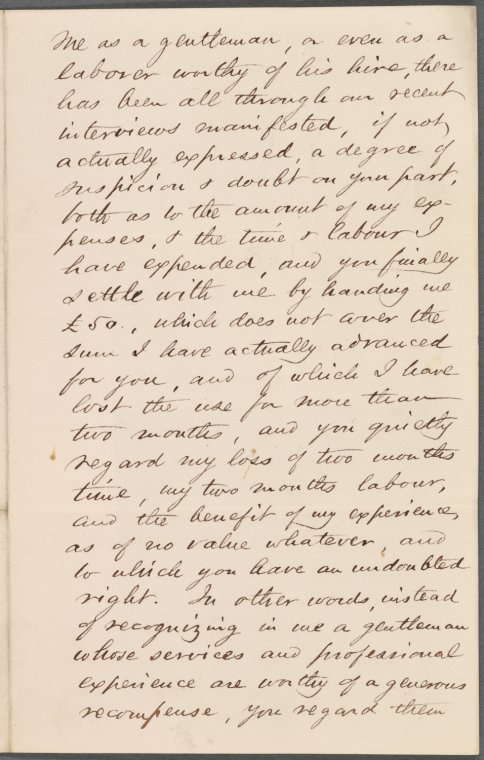 me as a gentleman, or even as a
laborer worthy of his hire, there
has been all through our recent
interviews manifested, if not,
actually expressed, a degree of
suspicion & doubt on your part,
both as to the amount of my ex-
penses, & the time & labour I
have expended, and you finally
settle with me by handing me
£50., which does not cover the
sum I have actually advanced
for you, and of which I have
lost the use for more than
two months, and you quietly
regard my loss of two months
time, my two months labour,
and the benefit of my experience,
as of no value whatever, and
to which you have an undoubted
right. In other words, instead
of recognizing in me a gentleman
whose services and professional
experience are worthy of a generous
recompense, you regard them